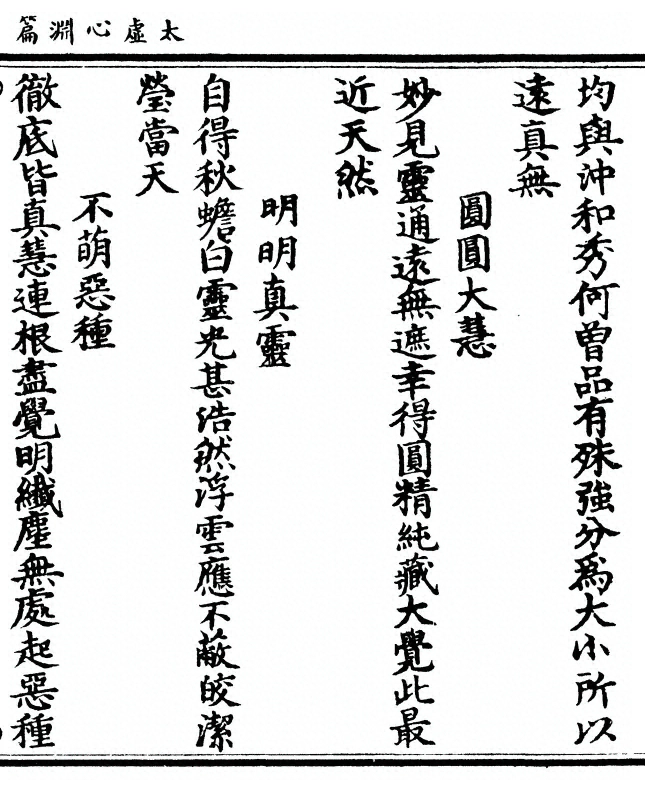 太虛心淵篇
均與沖和秀何曾品有殊強分爲大小所以
遠真無
圓圓大慧
妙見靈通遠無遮幸得圓精純藏大覺此最
近天然
明明真靈
自得秋蟾白靈光甚浩然浮雲應不蔽皎潔
瑩當天
不萌惡種
徹底皆真慧連根盡覺明纖塵無處起惡種